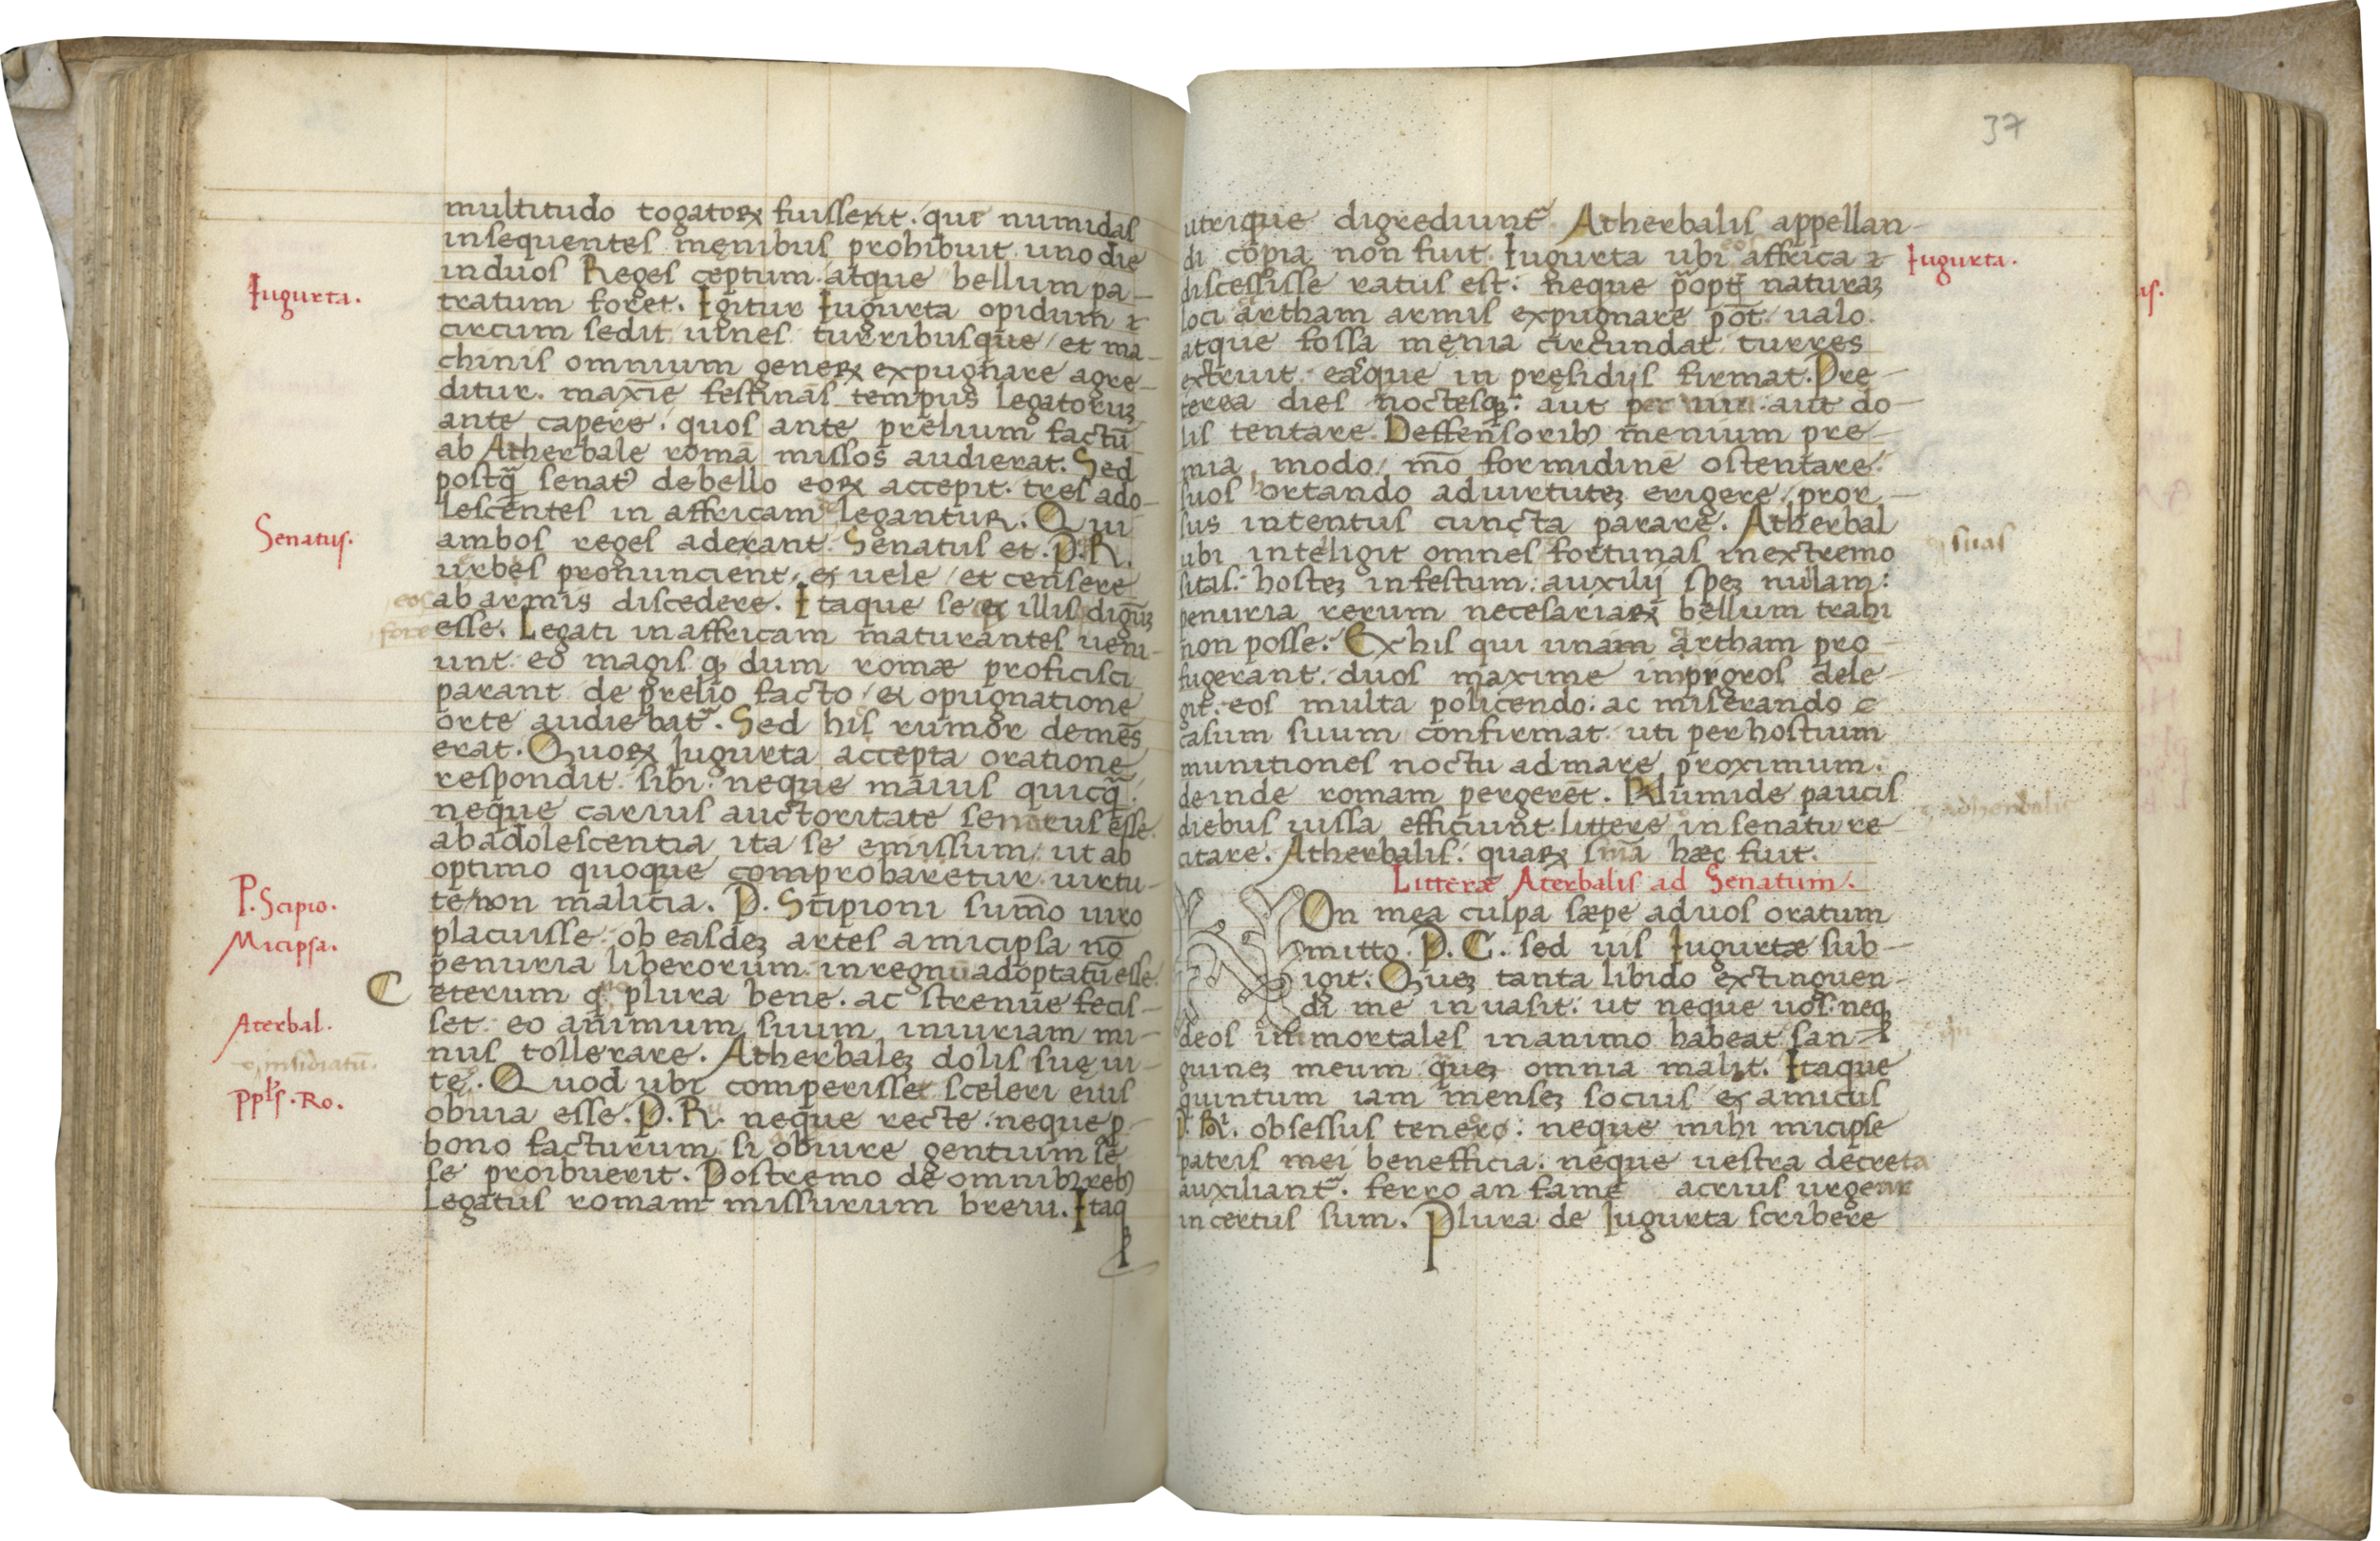 multitudo togatoꝝ fuissent. qui numidas
insequentes męnibus prohibuit uno die
induos Reges ceptum. atque bellum pa-
Iugurta.
tratum foret. Igitur Iugurta opidum
circum sedit uines turribusque et ma-
chinis omnium geneꝝ expugnare agre-
ditur. maxīe festinās tempus legatoruꝫ
ante capere. quos ante prelium factū
ab Atherbale romā missos audierat. Sed
postq̄ senatꝰ debello eoꝝ accepit. tres ado-
lescentes in affricam legantur. Qui
Senatus.
ambos reges aderant. Senatus et. P. R.
urbes pronuncient. et uele et censere
eos
ab armis discedere. Itaque se et illis dignuꝫ
fore
esse. Legati in affricam maturantes ueni-
unt eo magis qꝫ dum romæ proficisci
parant de prelio facto et opugnatione
orte audiebat᷑. Sed his rumor demēs
erat. Quoꝝ Iugurta accepta oratione
respondit sibi neque maius quicq̄.
neque carius auctoritate senatus esse.
ab adolescentia ita se emissum ut ab
optimo quoque comprobaretur uirtu-
P. Scipio.
te non malicia. P. Scipioni sumō uiro
Micipsa.
placuisse ob easdeꝫ artes amicipsa nō
penuria liberorum in regnū adoptatū esse.
C eterum qꝫ plura bene. ac strenue fecis-
Aterbal.
set eo animum suum iniuriam mi-
nus tollerare. Atherbaleꝫ dolis suę ui-
insidiatū.
te. Quod ubi comperisset sceleri eius
Ppl's. Ro.
obuia esse. P. R. neque recte neque p
bono facturum si abiure gentium se
se proibuerit. Postremo de omnibꝰ rebꝰ
legatus romam missurum breui. Itaqꝫ
37
utrique digrediunt᷑ Atherbalis appellan-
di copia non fuit. Iugurta ubi eos affrica
Iugurta.
discessisse ratus est. neque p̄opt̄ naturaꝫ
loci artham armis expugnare pōt. ualo
atque fossa męnia circundat turres
extruit. easque in pręsidijs firmat. Pre-
terea dies noctesqꝫ. aut per uim aut do-
lis tentare. Deffensoribꝰ menium pre-
mia modo mō formidinē ostentare.
suos hortando aduirtuteꝫ erigere pror-
sus intentus cuncta parare. Atherbal
ubi inteligit omnes fortunas inextremo
suas
sitas. hosteꝫ infestum. auxilij speꝫ nullam:
penuria rerum necesariaꝝ bellum trahi
non posse. Ex his qui unam artham pro-
fugerant. duos maxime impigros dele-
git. eos multa policendo. ac miserando
casum suum confirmat uti per hostium
munitiones noctu ad mare proximum.
deinde romam pergerēt. Numide paucis
adherbalis
diebus iussa efficiunt. littere in senatu re-
citare. Atherbalis. quaꝝ smā hæc fuit.
Litteræ Aterbalis ad Senatum.
NOn mea culpa sæpe aduos oratum
mitto. P. C. sed uis Iugurtæ sub-
igit. Queꝫ tanta libido extinguen-
di me inuasit. ut neque uos. neqꝫ
deos immortales inanimo habeat san-
guineꝫ meum queꝫ omnia malit. Itaque
quintum iam menseꝫ socius et amicus
P. R. obsessus teneor. neque mihi micipse
patris mei benefficia. neque uestra decreta
auxiliant᷑. ferro an fame acrius urgear
incertus sum. Plura de Iugurta scribere